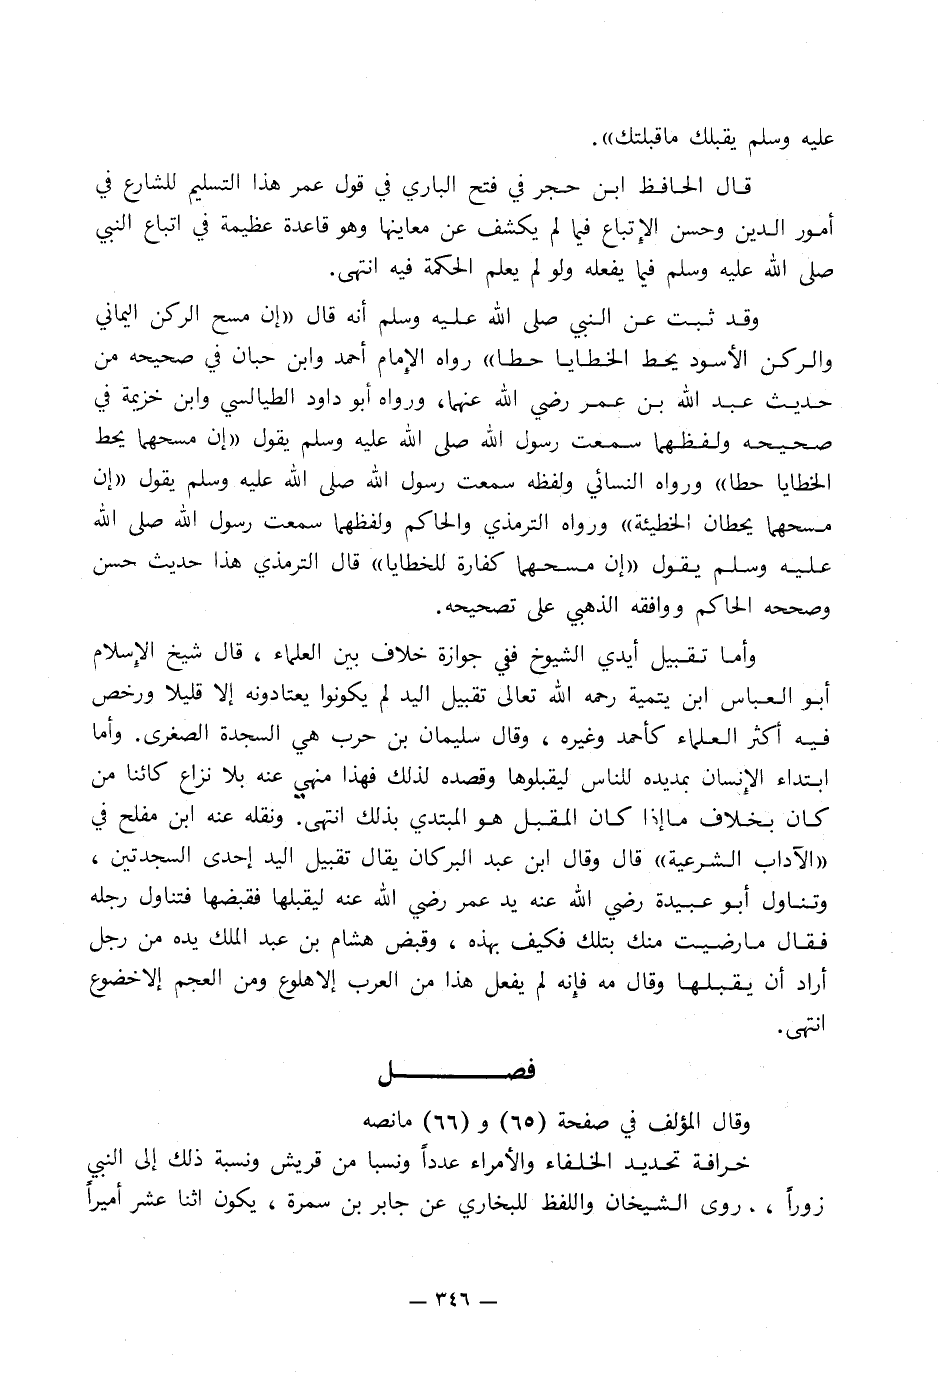 عليه وسلم يقبلك ماقبلتك)).
قال الحافظ ابن حجر في فتح الباري في قول عمر هذا التسليم للشارع في
أمور الدين وحسن الإتباع فيما لم يكشف عن معاينها وهو قاعدة عظيمة في اتباع النبي
صلى الله عليه وسلم فيما يفعله ولو لم يعلم الحكمة فيه انتهى.
وقد ثبت عن النبي صلى الله عليه وسلم أنه قال ((إن مسح الركن اليماني
والركن الأسود يحط الخطايا حطا)) رواه الإمام أحمد وابن حبان في صحيحه من
حديث عبد الله بن عمر رضي الله عنهما، ورواه أبو داود الطيالسي وابن خزيمة في
صحيحه ولفظهما سمعت رسول الله صلى الله عليه وسلم يقول ((إن مسحهما يحط
الخطايا حطا)) ورواه النسائي ولفظه سمعت رسول الله صلى الله عليه وسلم يقول ((إن
مسحهما يحطان الخطيئة)) ورواه الترمذي والحاكم ولفظهما سمعت رسول الله صلى الله
عليه وسلم يقول ((إن مسحهما كفارة للخطايا)) قال الترمذي هذا حديث حسن
وصححه الحاكم ووافقه الذهبي على تصحيحه.
وأما تقبيل أيدي الشيوخ ففي جوازة خلاف بين العلماء ، قال شيخ الإسلام
أبو العباس ابن يتمية رحمه الله تعالى تقبيل اليد لم يكونوا يعتادونه إلا قليلا ورخص
فيه أكثر العلماء كأحمد وغيره ، وقال سليمان بن حرب هي السجدة الصغرى. وأما
ابتداء الإنسان بمديده للناس ليقبلوها وقصده لذلك فهذا منهي عنه بلا نزاع كائنا من
كان بخلاف ماإذا كان المقبل هو المبتدي بذلك انتهى. ونقله عنه ابن مفلح في
((الآداب الشرعية)) قال وقال ابن عبد البركان يقال تقبيل اليد إحدى السجدتين ،
وتناول أبو عبيدة رضي الله عنه يد عمر رضي الله عنه ليقبلها فقبضها فتناول رجله
فقال مارضيت منك بتلك فكيف بهذه ، وقبض هشام بن عبد الملك يده من رجل
أراد أن يقبلها وقال مه فإنه لم يفعل هذا من العرب إلاهلوع ومن العجم إلاخضوع
انتهى.
فصــــــــل
وقال المؤلف في صفحة (٦٥) و (٦٦) مانصه
خرافة تحديد الخلفاء والأمراء عدداً ونسبا من قريش ونسبة ذلك إلى النبي
زوراً ، . روى الشيخان واللفظ للبخاري عن جابر بن سمرة ، يكون اثنا عشر أميراً
— ٣٤٦ —